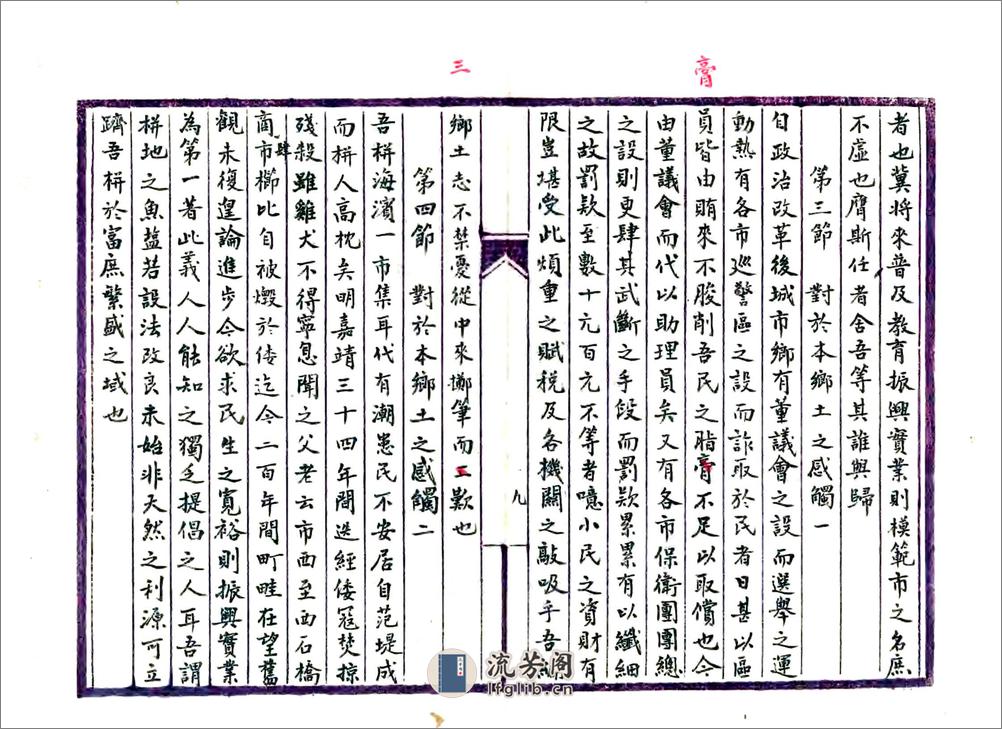 膏
三
者也冀將來普及教育振興實業則模範市之名庶
不虛也膺斯任者舍吾等其誰與歸
第三節 對於本鄉土之感觸一
自政治改革後城市鄉有董議會之設而選舉之運
動熱有各市巡警區之設而詐取於民者日甚以區
員皆由賄來不朘削吾民之脂膏不足以取償也今
由董議會而代以助理員矣又有各市保衛團團總
之設則更肆其武斷之手段而罰欵累累有以纖細
之故罰欵至數十元百元不等者噫小民之資財有
限豈堪受此煩重之賦稅及各機關之敲吸乎吾
九
鄉土志不禁憂從中來擲筆而三歎也
第四節 對於本鄉土之感觸二
吾栟海濱一市集耳代有潮患民不安居自范堤成
而栟人高枕矣明嘉靖三十四年間迭經倭寇焚掠
殘殺雖雞犬不得寧息聞之父老云市西至西石橋
商市肆櫛比自被燬於倭迄今二百年間町畦在望舊
觀未復遑論進步今欲求民生之寬裕則振興實業
為第一著此義人人能知之獨乏提倡之人耳吾謂
栟地之魚盐若設法改良未始非天然之利源可立
躋吾栟於富庶繁盛之域也
流芳阁
lfglib.cn